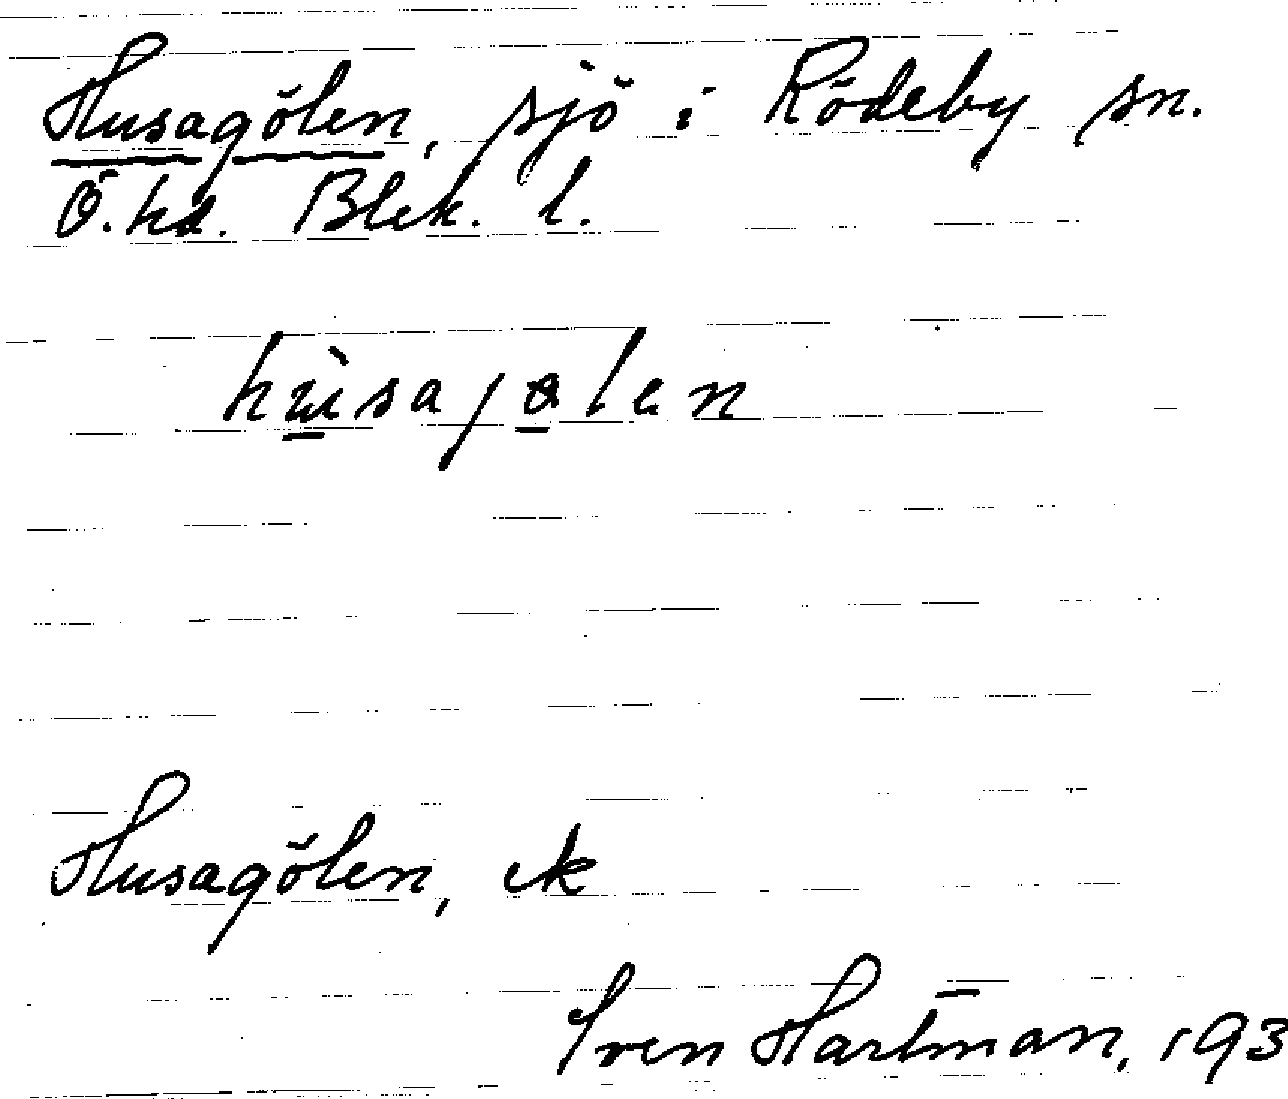 Husagölen, sjö i Rödeby sn.
Ö. hd. Blek. l.
Husagölen, ek
Sven Hartman, 193